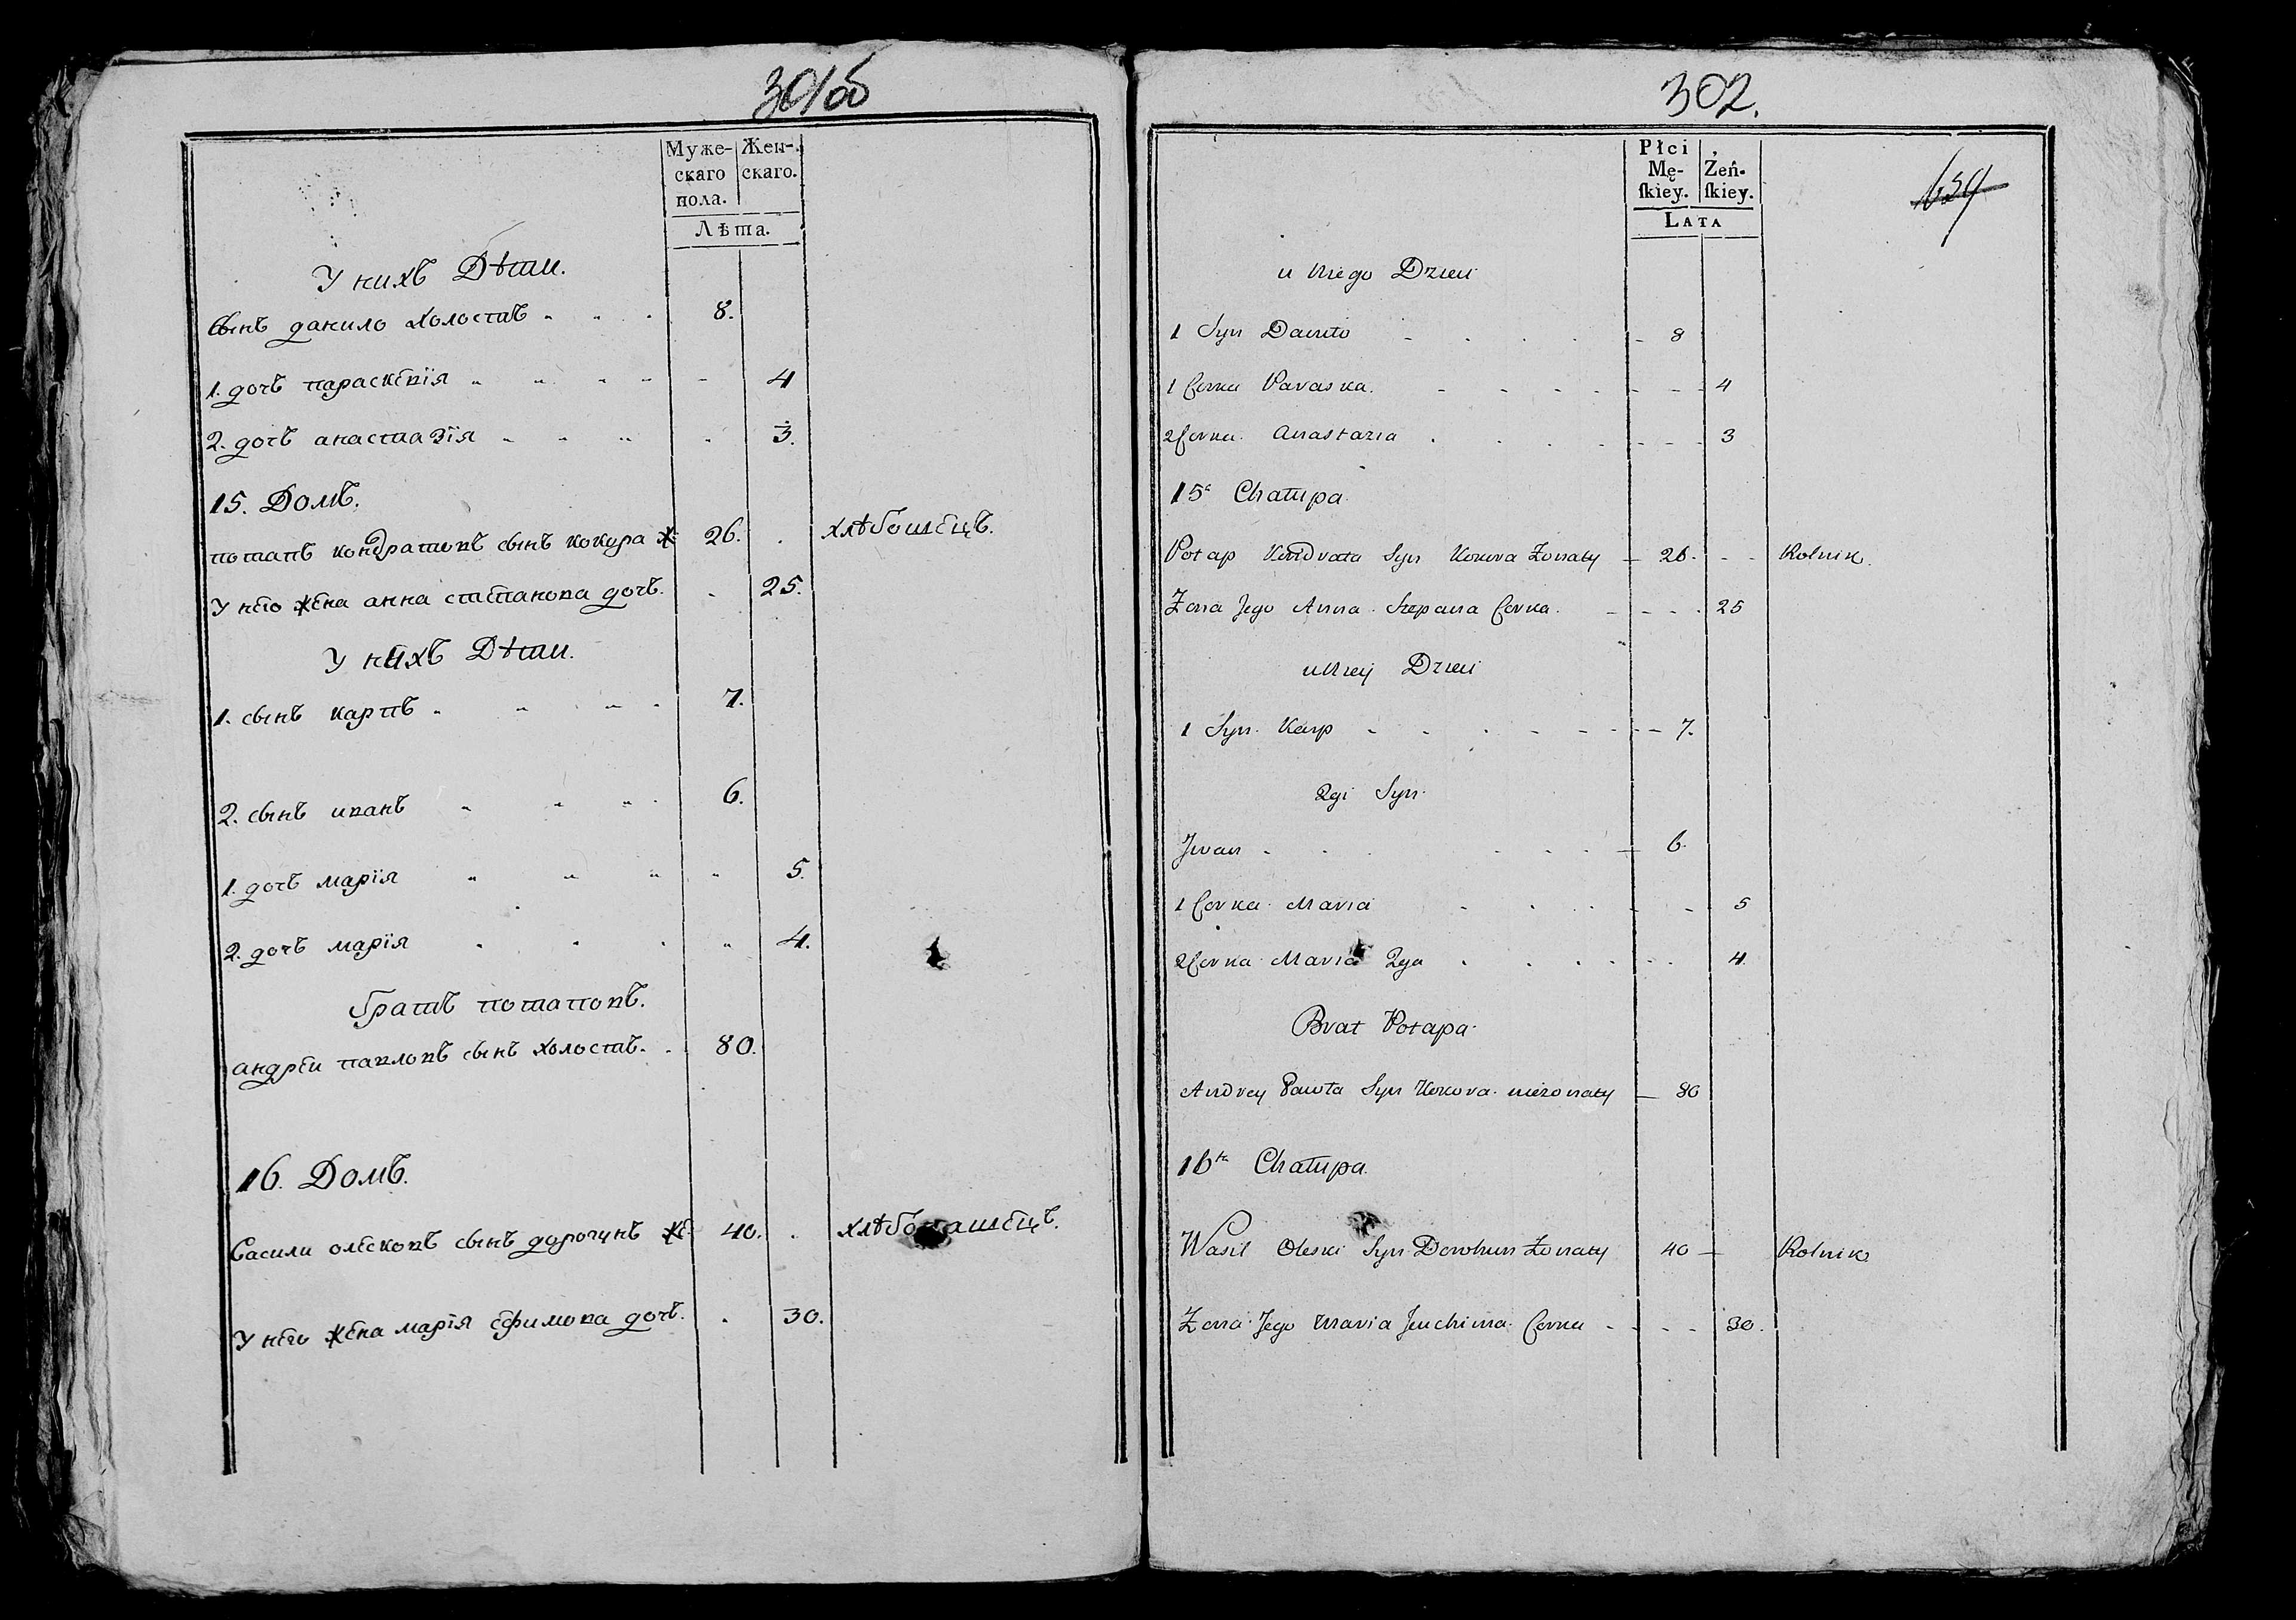 301об
Муже-
скаго
пола.
Жен-
скаго.
Лѣта.
У нихъ Дѣти.
сынъ данило холостъ 8.
1. дочъ параскевїя 4
2. дочъ анастазїя 3.
15. Домъ.
потапъ кондратовъ сынъ кокора ж 26. хлѣбопашецъ.
У него жена анна степанова дочъ. 25.
У нихъ Дѣти.
1. сынъ карпъ 7.
2. сынъ иванъ 6.
1. дочъ марїя 5.
2. дочъ марїя 4.
братъ потаповъ.
андреи павловъ сынъ холостъ. 80.
16. Домъ.
Васили олесковъ сынъ дорогунъ же 40. хлѣбопашецъ.
У него жена марїя ефимова дочъ. 30.
302.
Płci
Mę-
ſkiey.
Żeń-
ſkiey.
LATA
639
u Niego Dzieci
1 Syn Daniło 8
1 Corka Paraska. 4
2 Corka. Anastazia 3
15a Chałupa
Potap Kondrata Syn Kokora Żonaty 26. Rolnik.
Żona Jego Anna Stepana Corka. 25
u Niey Dzieci
1 Syn Karp 7.
2gi Syn
Jwan 6.
1 Corka Maria 5
2 Corka Maria 2ga 4.
Brat Potapa
Andrey Pawła Syn Kokora nieżonaty 80
16ta Chałupa
Wasil Oleski Syn Dorohun Żonaty 40 Rolnik
Żona Jego Maria Jeuchima Corka 30.